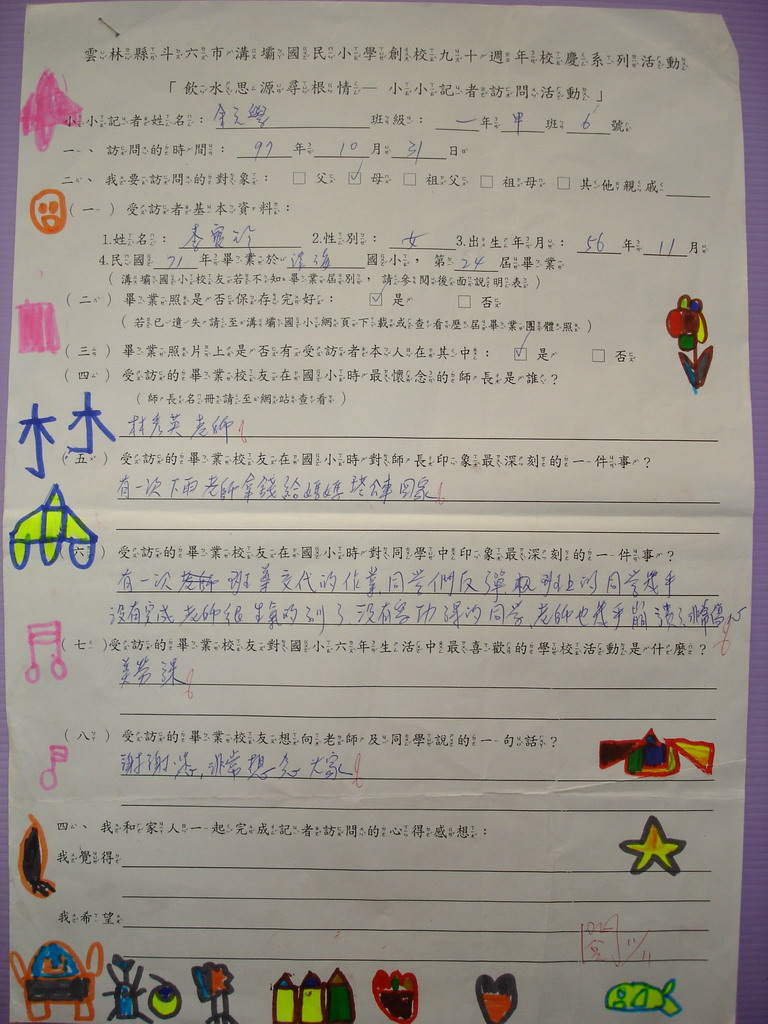 雲林縣斗六市溝壩國民小學創校九十週年校慶系列活動
「飲水思源尋根情— 小小記者訪問活動」
小小記者姓名： 班級：一年甲班6號
一、訪問的時間：97年10月31日
二、我要訪問的對象：□父☑母□祖父□祖母□其他親戚
（一）受訪者基本資料：
1.姓名：李 2.性別：女 3.出生年月：56年11月
4.民國71年畢業於 國小，第24屆畢業
（溝壩國小校友若不知畢業屆別，請參閱後面說明表）
（二）畢業照是否保存完好：☑是 □否
（若已遺失請至溝壩國小網頁下載或查看歷屆畢業團體照）
（三）畢業照片上是否有受訪者本人在其中：☑是 □否
（四）受訪的畢業校友在國小時最懷念的師長是誰？
（師長名冊請至網站查看）
林秀英老師
（五）受訪的畢業校友在國小時對師長印象最深刻的一件事？
有一次下雨老師拿錢給媽媽搭車回家
（六）受訪的畢業校友在國小時對同學中印象最深刻的一件事？
有一次 班導交代的作業,同學們反彈 班上的同學幾乎
沒有完成,老師很生氣的 了沒有寫功課的同學,老師也幾乎崩潰了
（七）受訪的畢業校友對國小六年生活中最喜歡的學校活動是什麼？
美勞課
（八）受訪的畢業校友想向老師及同學說的一句話？
謝謝您,非常想念大家
四、我和家人一起完成記者訪問的心得感想：
我覺得
我希望
閱 11/11